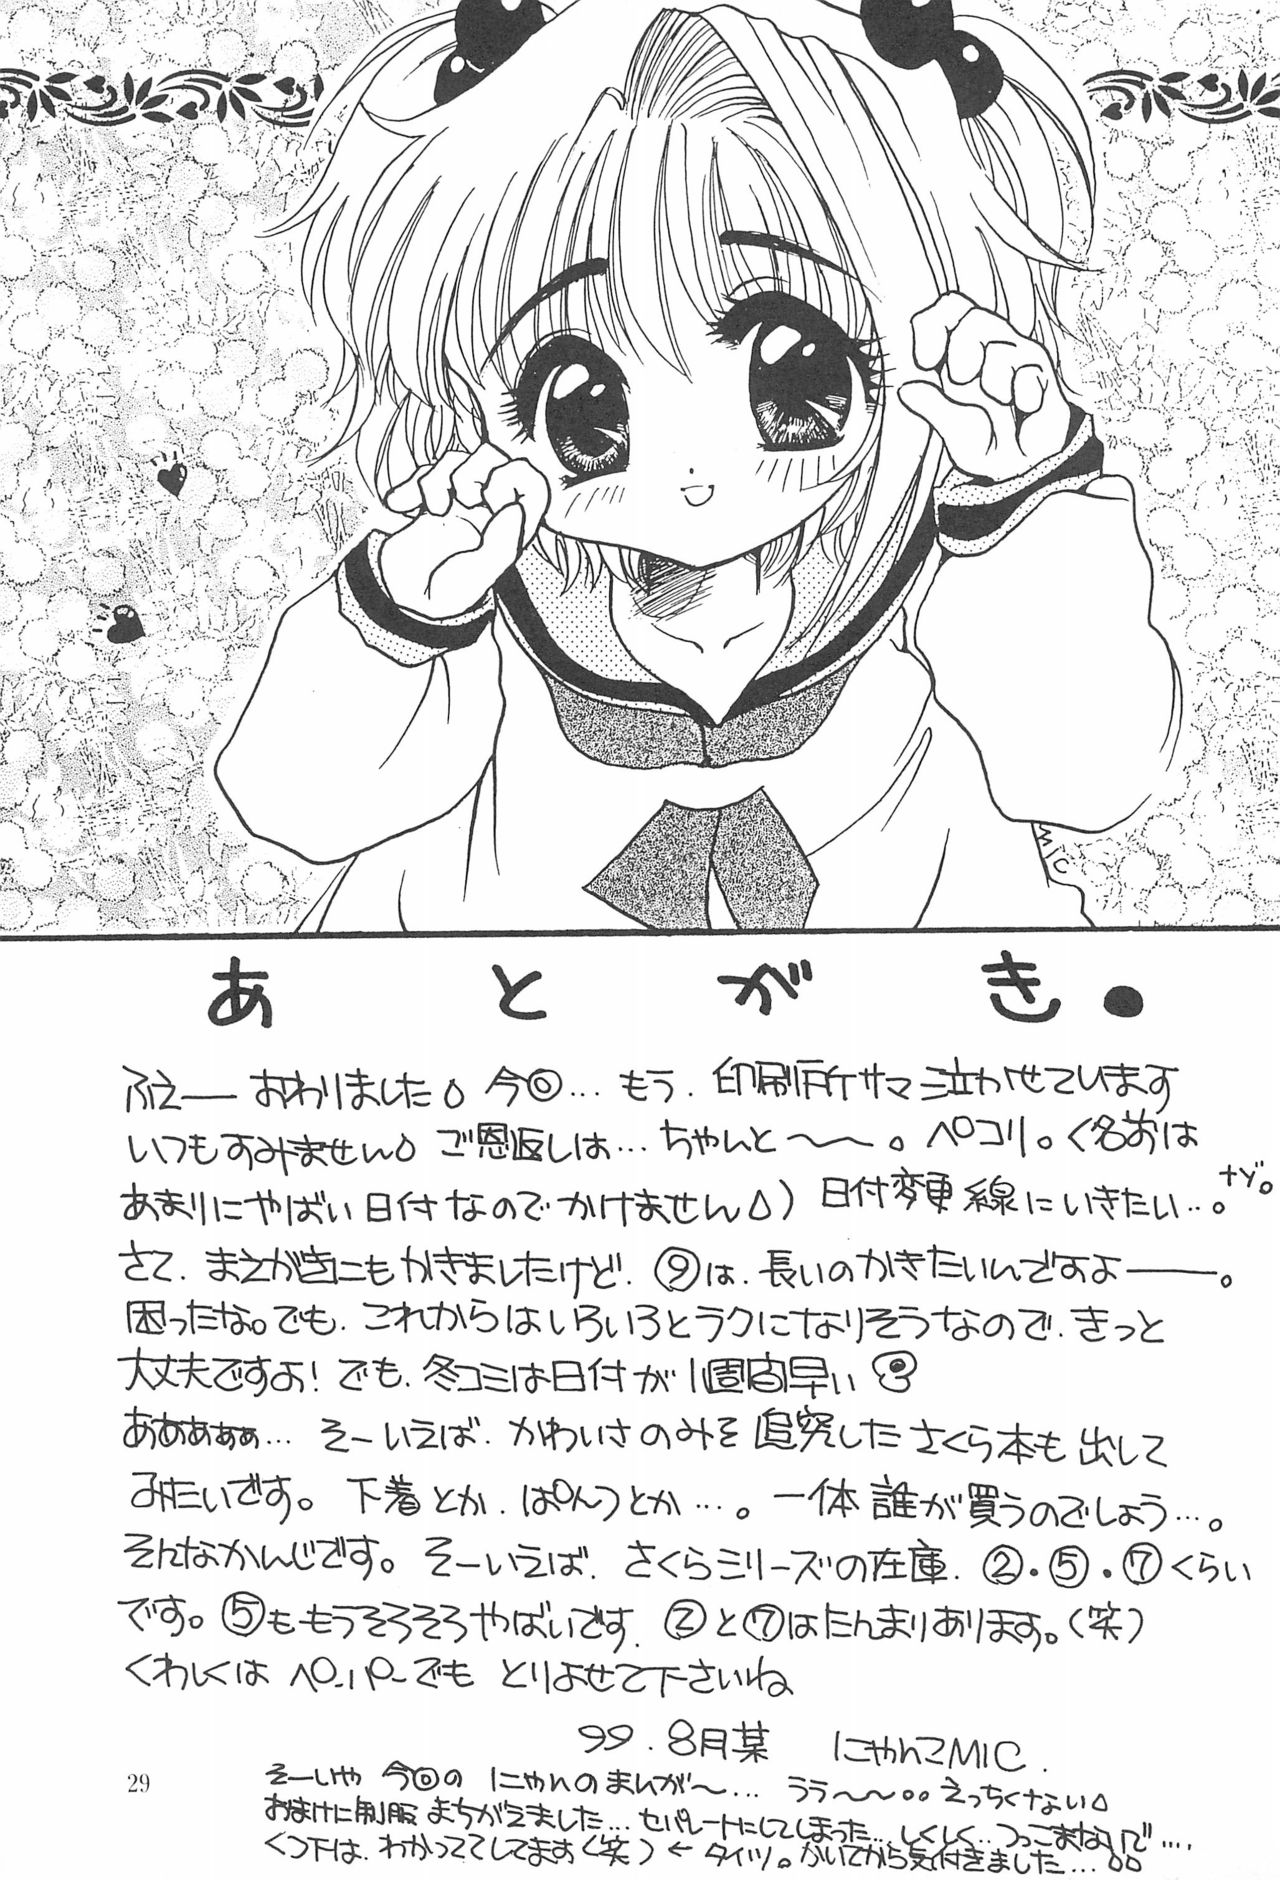 MIC
あとがき.
ふえーー おわりました。今回… もう、印刷所サマ泣かせています
いつもすみません。ご恩返しは… ちゃんと〜〜。ペコリ。(名前は
あまりにやばい日付なのでかけません。) 日付変更線にいきたい…。ナゾ。
さて、まえがきにもかきましたけど、⑨は、長いのかきたいんですよーー。
困ったな。でも、これからはいろいろとラクになりそうなので、きっと
大丈夫ですよ! でも、冬コミは日付が1週間早い
ああぁぁぁ… そーいえば、かわいさのみを追究したさくら本も出して
みたいです。下着とか、ぱんつとか…。一体誰が買うのでしょう…。
そんなかんじです。そーいえば、さくらシリーズの在庫、②・⑤・⑦くらい
です。⑤ももうそろそろやばいです、②と⑦はたんまりあります。(笑)
くわしくは ペーパーでも とりよせて下さいね
99.8月某 にゃんこMIC.
そーいや 今回の にゃんのまんが〜… うう〜〜。。えっちくない。
おまけに制服まちがえました… セパレートにしてしまった… しくしく… つっこまないで….
くつ下は、わかっててしてます(笑) ← タイツ。かいてから気付きました…。。
29